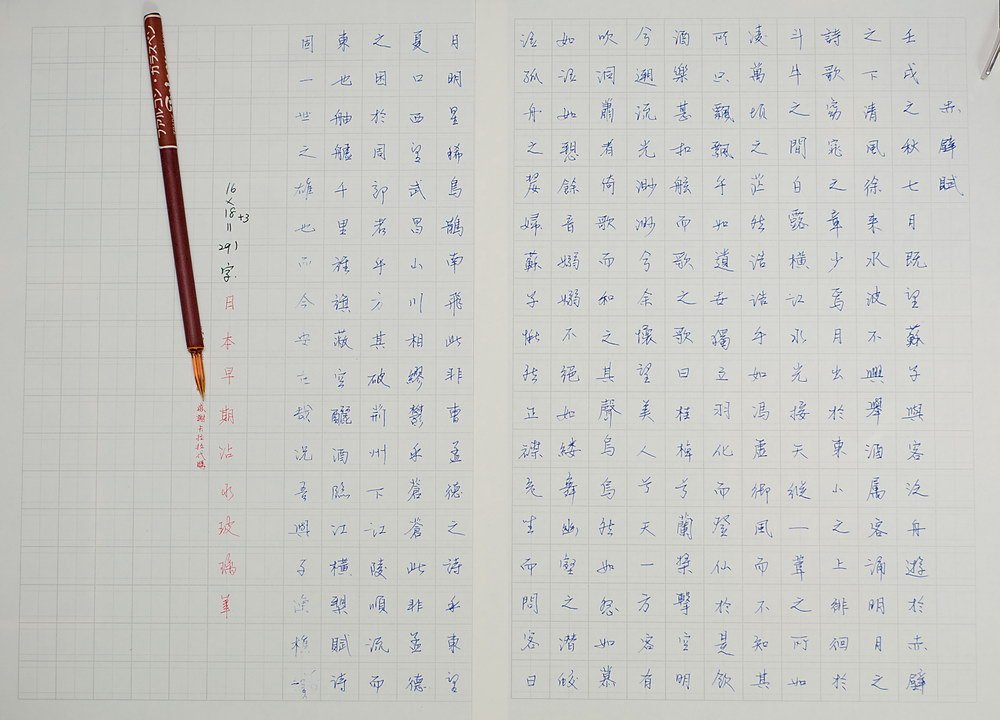 赤壁賦
壬戌之秋七月既望蘇子與客泛舟遊於赤壁
之下清風徐来水波不興舉酒属客誦明月之
詩歌窈窕之章少焉月出於東小之上徘徊於
斗牛之間白露橫江水光接天縱一葦之所如
凌萬頃之茫然浩浩乎如馮虛御風而不知其
所止飄飄乎如遺世獨立羽化而登仙於是飲
酒樂甚扣舷而歌之歌曰桂棹兮蘭槳擊空明
兮遡流光渺渺兮余懷望美人兮天一方客有
吹洞蕭者倚歌而和之其聲烏烏然如怨如慕
如泣如愬餘音嫋嫋不絕如縷舞幽壑之潛蛟
泣孤舟之嫠婦蘇子愀然正襟危坐而問客曰
月明星稀烏鵲南飛此非曹孟德之詩乎東望
夏口西望武昌山川相繆鬱乎蒼蒼此非孟德
之困於周郎者乎方其破荊州下江陵順流而
東也舳艫千里旌旗蔽空釃酒臨江橫槊賦詩
固一世之雄也而今安在哉況吾與子漁樵
16×18+3=291字
日本早期沾水玻璃筆
ファルコン・ガラスペン